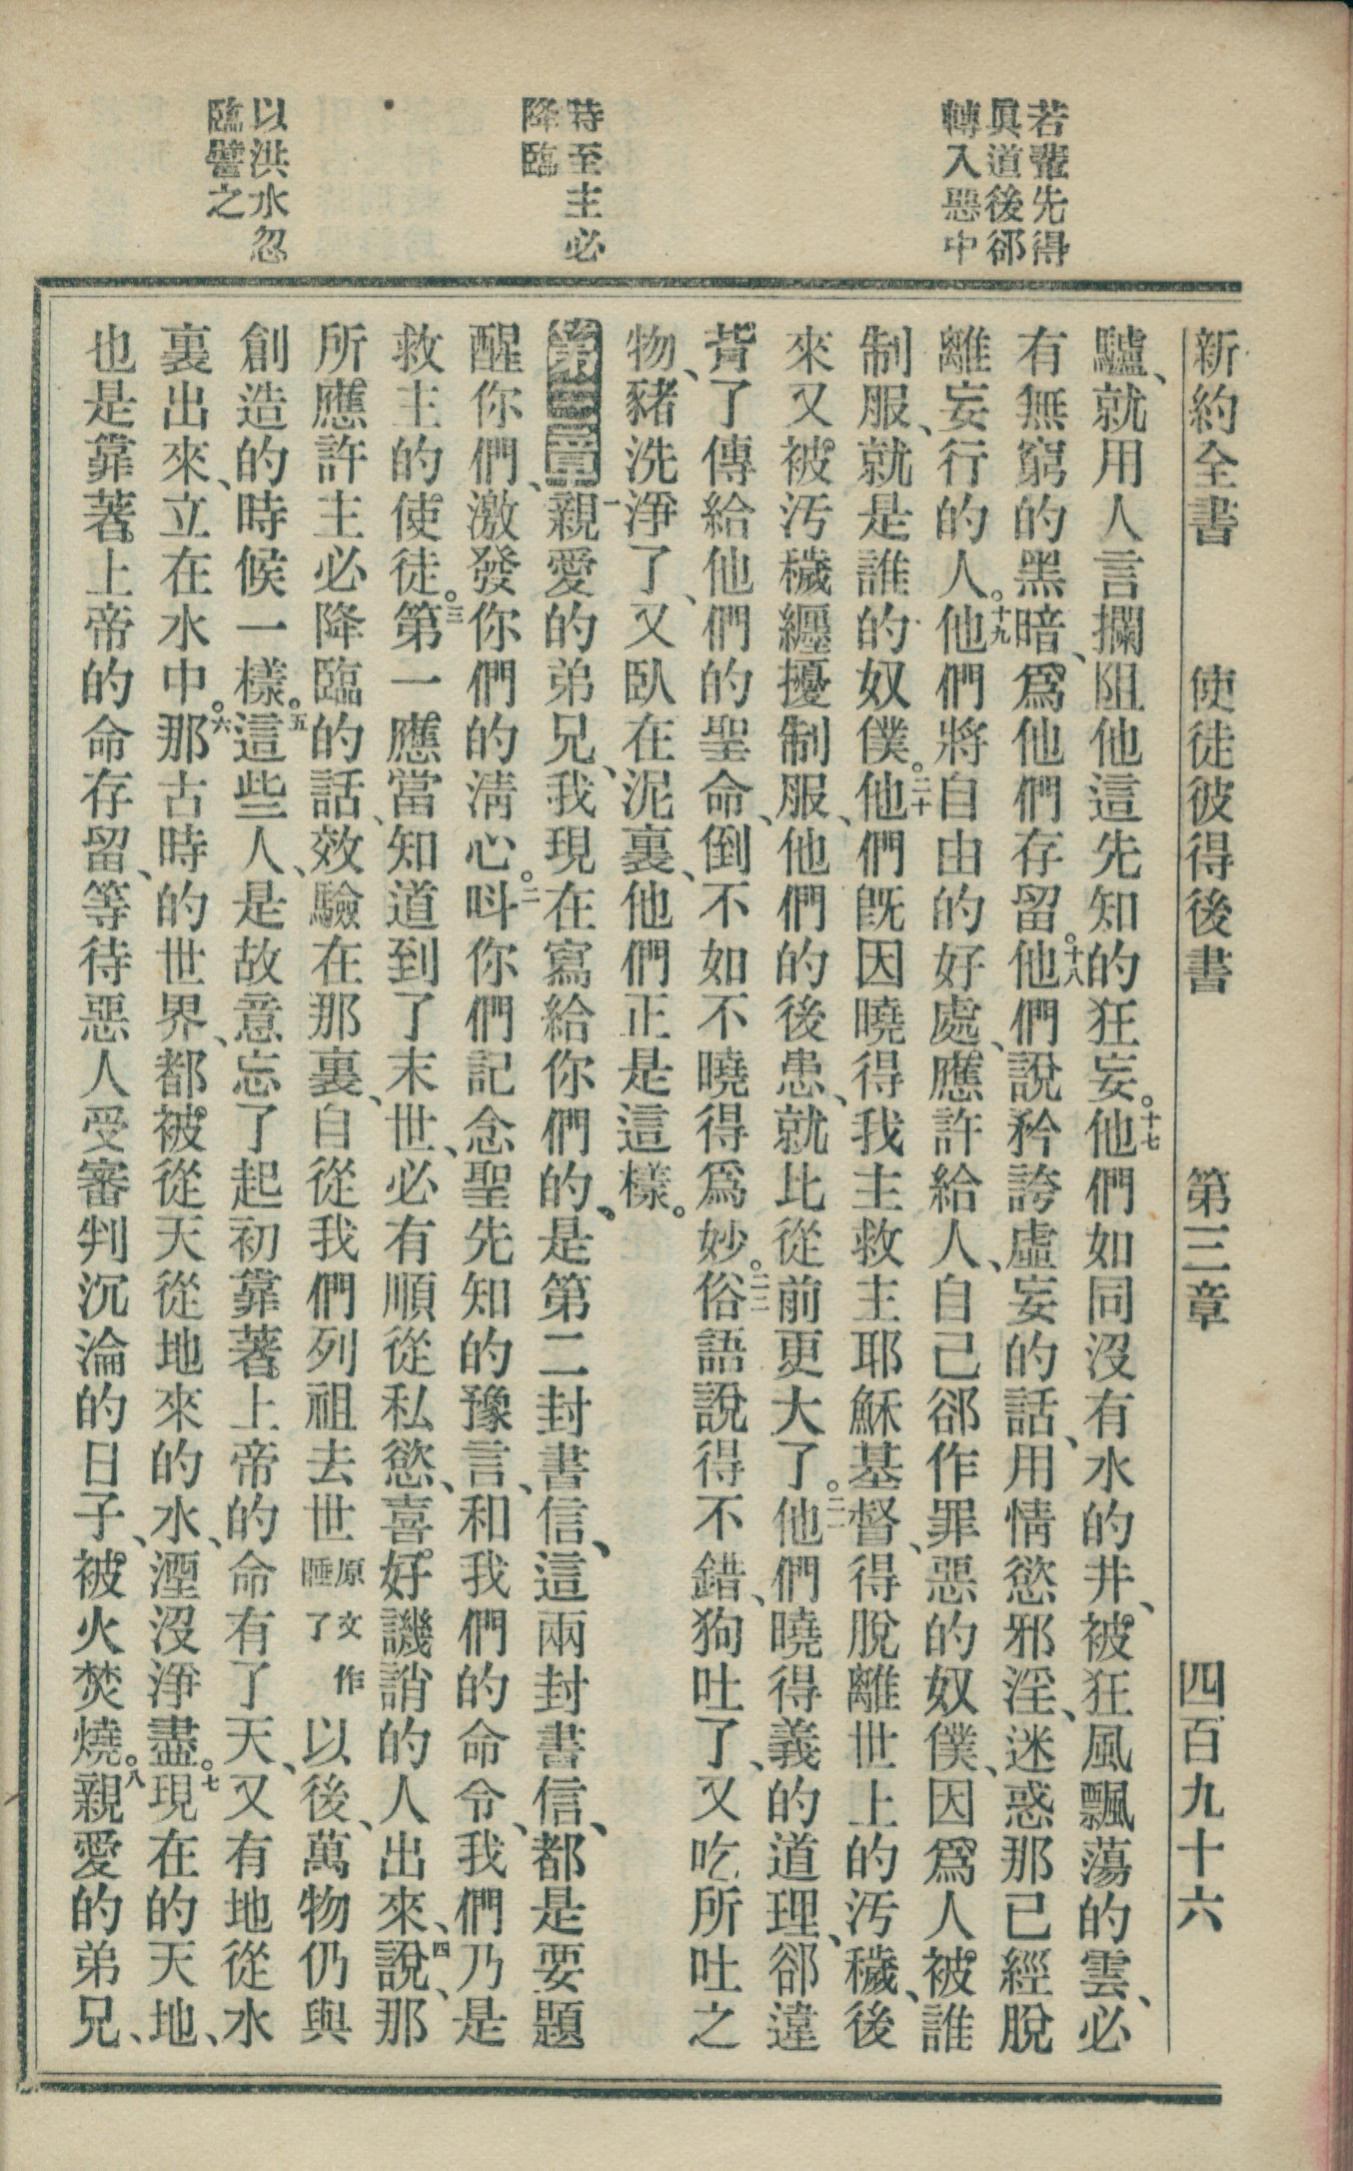 若輩先得
眞道後郤
轉入惡中
時至主必
降臨
以洪水忽
臨譬之
新約全書 使徒彼得後書 第三章 四百九十六
驢、就用人言攔阻他這先知的狂妄。十七他們如同沒有水的井、被狂風飄蕩的雲、必
有無窮的黑暗、爲他們存留。十八他們說矜誇虛妄的話、用情慾邪淫、迷惑那已經脫
離妄行的人。十九他們將自由的好處、應許給人、自己郤作罪惡的奴僕、因爲人被誰
制服、就是誰的奴僕。二十他們旣因曉得我主救主耶穌基督、得脫離世上的污穢、後
來又被污穢纒擾制服、他們的後患、就比從前更大了。二一他們曉得義的道理、郤違
背了傳給他們的聖命、倒不如不曉得爲妙。二二俗語說得不錯、狗吐了、又吃所吐之
物、豬洗淨了、又臥在泥裏、他們正是這樣。
第三章一親愛的弟兄、我現在寫給你們的、是第二封書信、這兩封書信、都是要題
醒你們、激發你們的淸心。二呌你們記念聖先知的豫言、和我們的命令、我們乃是
救主的使徒。三第一應當知道到了末世、必有順從私慾、喜好譏誚的人出來、四說、那
所應許主必降臨的話、效驗在那裏、自從我們列祖去世原文作睡了以後、萬物仍與
創造的時候一樣。五這些人、是故意忘了起初靠著上帝的命有了天、又有地從水
裏出來、立在水中。六那古時的世界、都被從天從地來的水、湮沒淨盡。七現在的天地、
也是靠著上帝的命存留、等待惡人受審判沉淪的日子、被火焚燒。八親愛的弟兄、